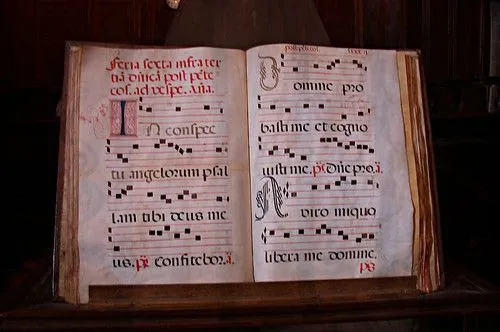 Feria sexta infra ter
tiā dñicā post pēte
cos. ad vespe. aña.
IN conspec
tu angelorum psal
lam tibi deus me
us. ps. Confitebor. a.
post pētecos.
Domine pro
basti me et cogno
visti me. ps. Dñe pro. a.
A viro iniquo
libera me domine.
ps